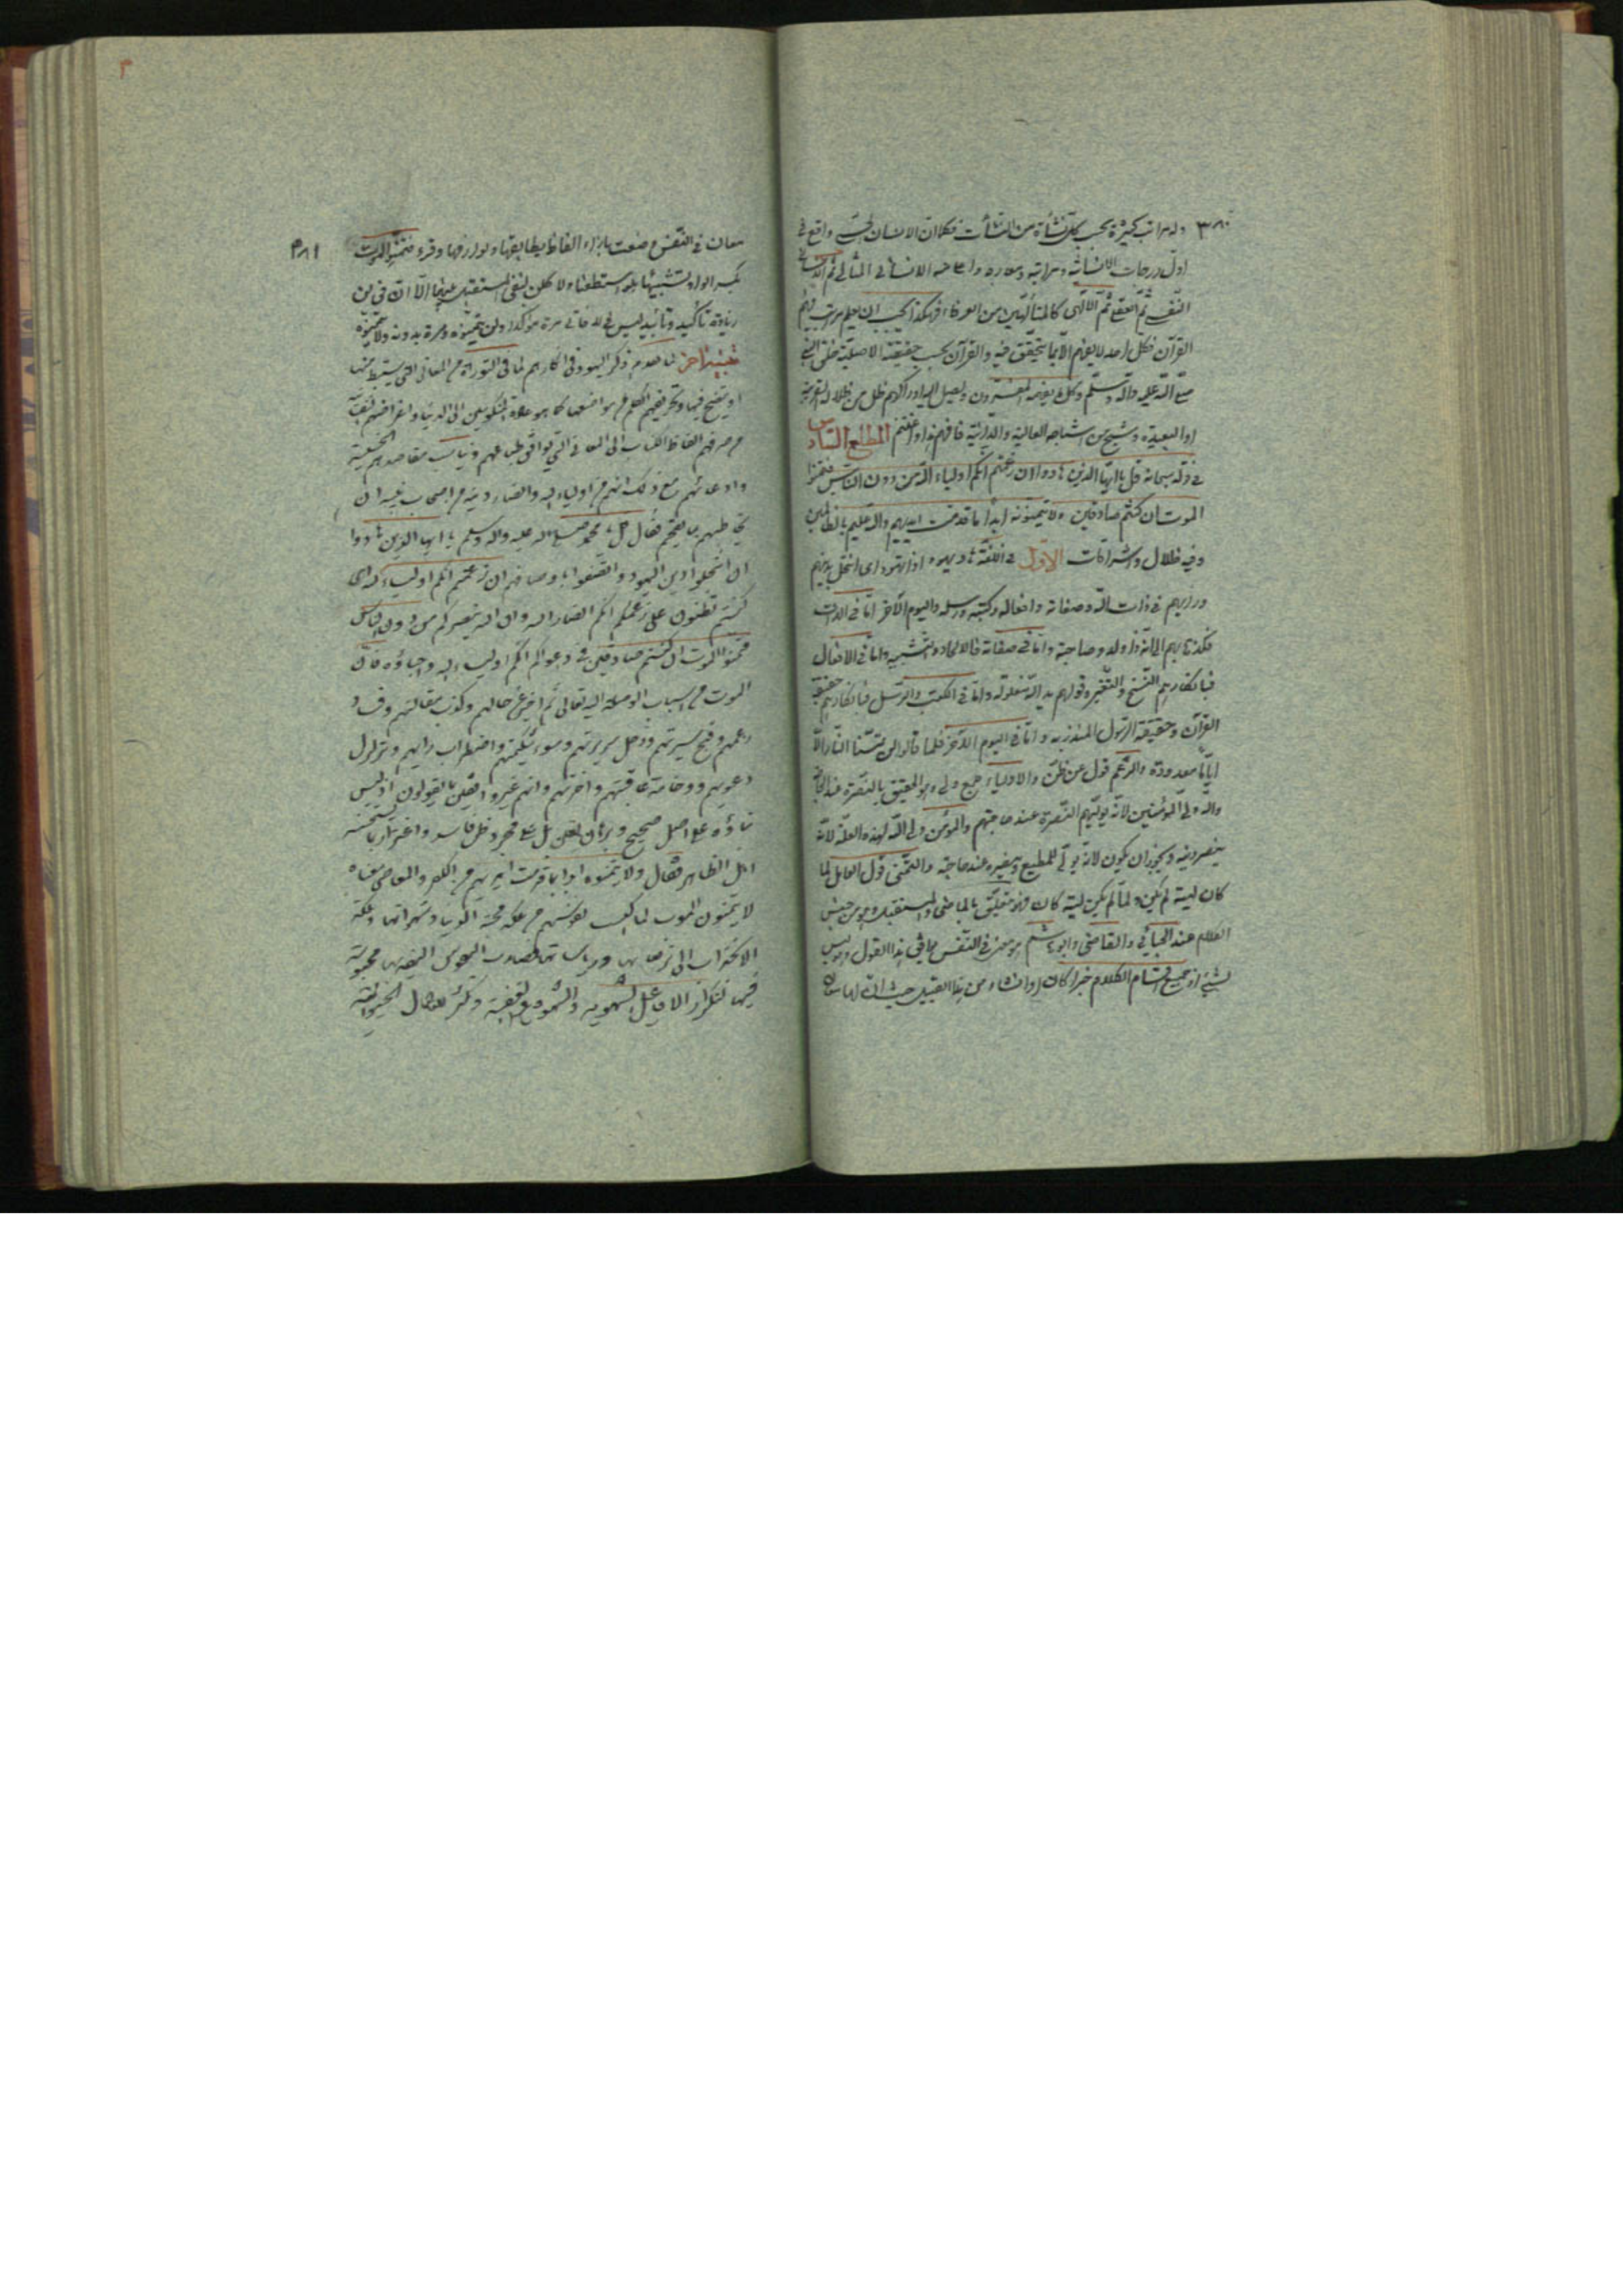 ٣٨٠
وله مراتب كثيرة بحسب كل نشأة من النشأت فكما ان الانسان الحسي واقع في
اول درجات الانسانية ومراتبه الانسان المثالي ثم
النفسي ثم العقلي ثم الالهي كالمتألهين من العرفاء فهكذا يجب ان يعلم مراتب فهم
القرآن فكل احد لا يفهم الا بما يتحقق فيه والقرآن بحسب حقيقته الاصلية خلق النبي
صلى الله عليه وآله وسلم وكل ما يفهمه المفسرون ويصل اليه ادراكهم ظل من ظلاله القريبة
او البعيدة وشبح من اشباحه العالية والدانية فافهم هذا واغتنم المطلع السادس
في قوله سبحانه قل يا ايها الذين هادوا ان زعمتم انكم اولياء لله من دون الناس فتمنوا
الموت ان كنتم صادقين ولا يتمنونه ابدا بما قدمت ايديهم والله عليم بالظالمين
وفيه ظلال واشراقات الاول في اللغة هاد يهود اذا تهود اى انتحل دينهم
ورأيهم في ذات الله وصفاته وافعاله وكتبه ورسله واليوم الآخر اما في الذات
فكذهابهم الى انه ذا ولد وصاحبة واما في صفاته فالالحاد والتشبيه واما في الافعال
فبانكارهم النسخ والتغير وقولهم يد الله مغلولة واما في الكتب والرسل فبانكارهم حقيقة
القرآن وحقيقة الرسول المنذر به واما في اليوم الآخر فلما قالوا لن تمسنا النار الا
اياما معدودة والزعم قول عن ظن والاولياء جمع ولى وهو الحقيق بالنصرة عند الحاجة
والله ولى المؤمنين لانه يوليهم النصرة عند حاجتهم والمؤمن ولى الله لهذه العلة لانه
ينصر دينه ويجوز ان يكون لانه يولى المطيع وينصره عند حاجته والتمنى قول القايل لما
كان ليته لم يكن ولما لم يكن ليته كان فهو متعلق بالماضى والمستقبل وهو من جنس
الكلام عند الجبائي والقاضى وابو هاشم هو معنى في النفس يوافق هذا القول وليس
بشيء اذ جميع اقسام الكلام خبرا كان او انشاء من هذا القبيل حيث ان لها
٣٨١
معان في النفس وضعت بازاء الفاظ يطابقها وقرء فتمنوا الموت
بكسر الواو تشبيها بلو استطعنا ولا كلن لنفى المستقبل الا ان في لن
زيادة تأكيد وتأبيد ليس في لا فاتى مرة مؤكدا ولن يتمنوه ومرة بدونه ولا يتمنونه
تنبيه آخر لما تقدم ذكر اليهود في انكارهم لما في التوراة من المعاني التي يستنبط منها
او يتضح فيها وتحريفهم الكلم من مواضعها كما هو عادة
صرفهم الفاظ الكتاب الى المعاني التي يوافق طباعهم مقاصدهم الخسيسة
وادعائهم مع ذلك انهم من اولياء الله
يخاطبهم بما يفحمهم فقال قل يا محمد صلى الله عليه وآله وسلم يا ايها الذين هادوا
اى انتحلوا دين اليهود ان زعمتم انكم اولياء لله اى
كنتم تظنون على زعمكم انكم انصار الله وان الله ينصركم من دون الناس
فتمنوا الموت ان كنتم صادقين في دعواكم انكم اولياء الله واحباؤه فان
الموت من اسباب الوصلة اليه تعالى ثم اخبر عن حالهم وكذب مقالتهم وفساد
زعمهم وقبح سيرتهم ودغل سريرتهم وسوء واضطراب رأيهم وتزلزل
دعويهم ووخامة عاقبتهم واخرتهم وانهم غير واثقين بما يقولون اذ ليس
بناؤه على اصل صحيح وبرهان يقين بل على مجرد ظن فاسد واغترار بما يستحسنه
اهل الظاهر فقال ولا يتمنونه ابدا بما قدمت ايديهم من الكفر والمعاصي معناه
لا يتمنون الموت نفوسهم من علاقة محبة الدنيا وشهواتها وملكة
الانجذاب الى
فيها لتكرار الافاعيل الشهوية والغضبية وتكثر الاعمال الحيوانية